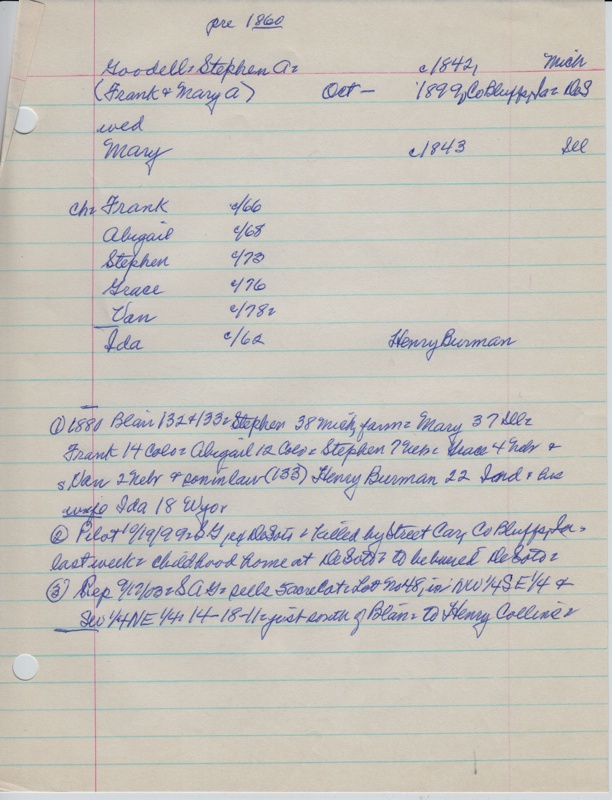 pre 1860
Goodell, Stephen A= c1842, Mich
(Frank & Mary A) Oct — 1899, Co Bluffs, Ia= DeS
wed
Mary c/1843 Ill
ch= Frank c/66
Abigail c/68
Stephen c/73
Grace c/76
Van c/78=
Ida c/62 Henry Burman
① 1880 Blair 132&133= Stephen 38 Mich, farm= Mary 37 Ill=
Frank 14 Colo= Abigail 12 Colo= Stephen 7 Neb= Grace 4 Nebr &
Van 2 Nebr & soninlaw (133) Henry Burman 22 Ind & his
wife Ida 18 Wyo=
② Pilot 10/19/99= SG, DeSoto= killed by Street Car, Co Bluffs, Ia=
last week= childhood home at DeSoto= to be buried DeSoto=
③ Rep 9/17/03= S A G= sells 5acre lot= Lot No 48, in NW 1/4 SE 1/4 &
SW 1/4 NE 1/4= 14-18-11= just south of Blair= to Henry Collins=